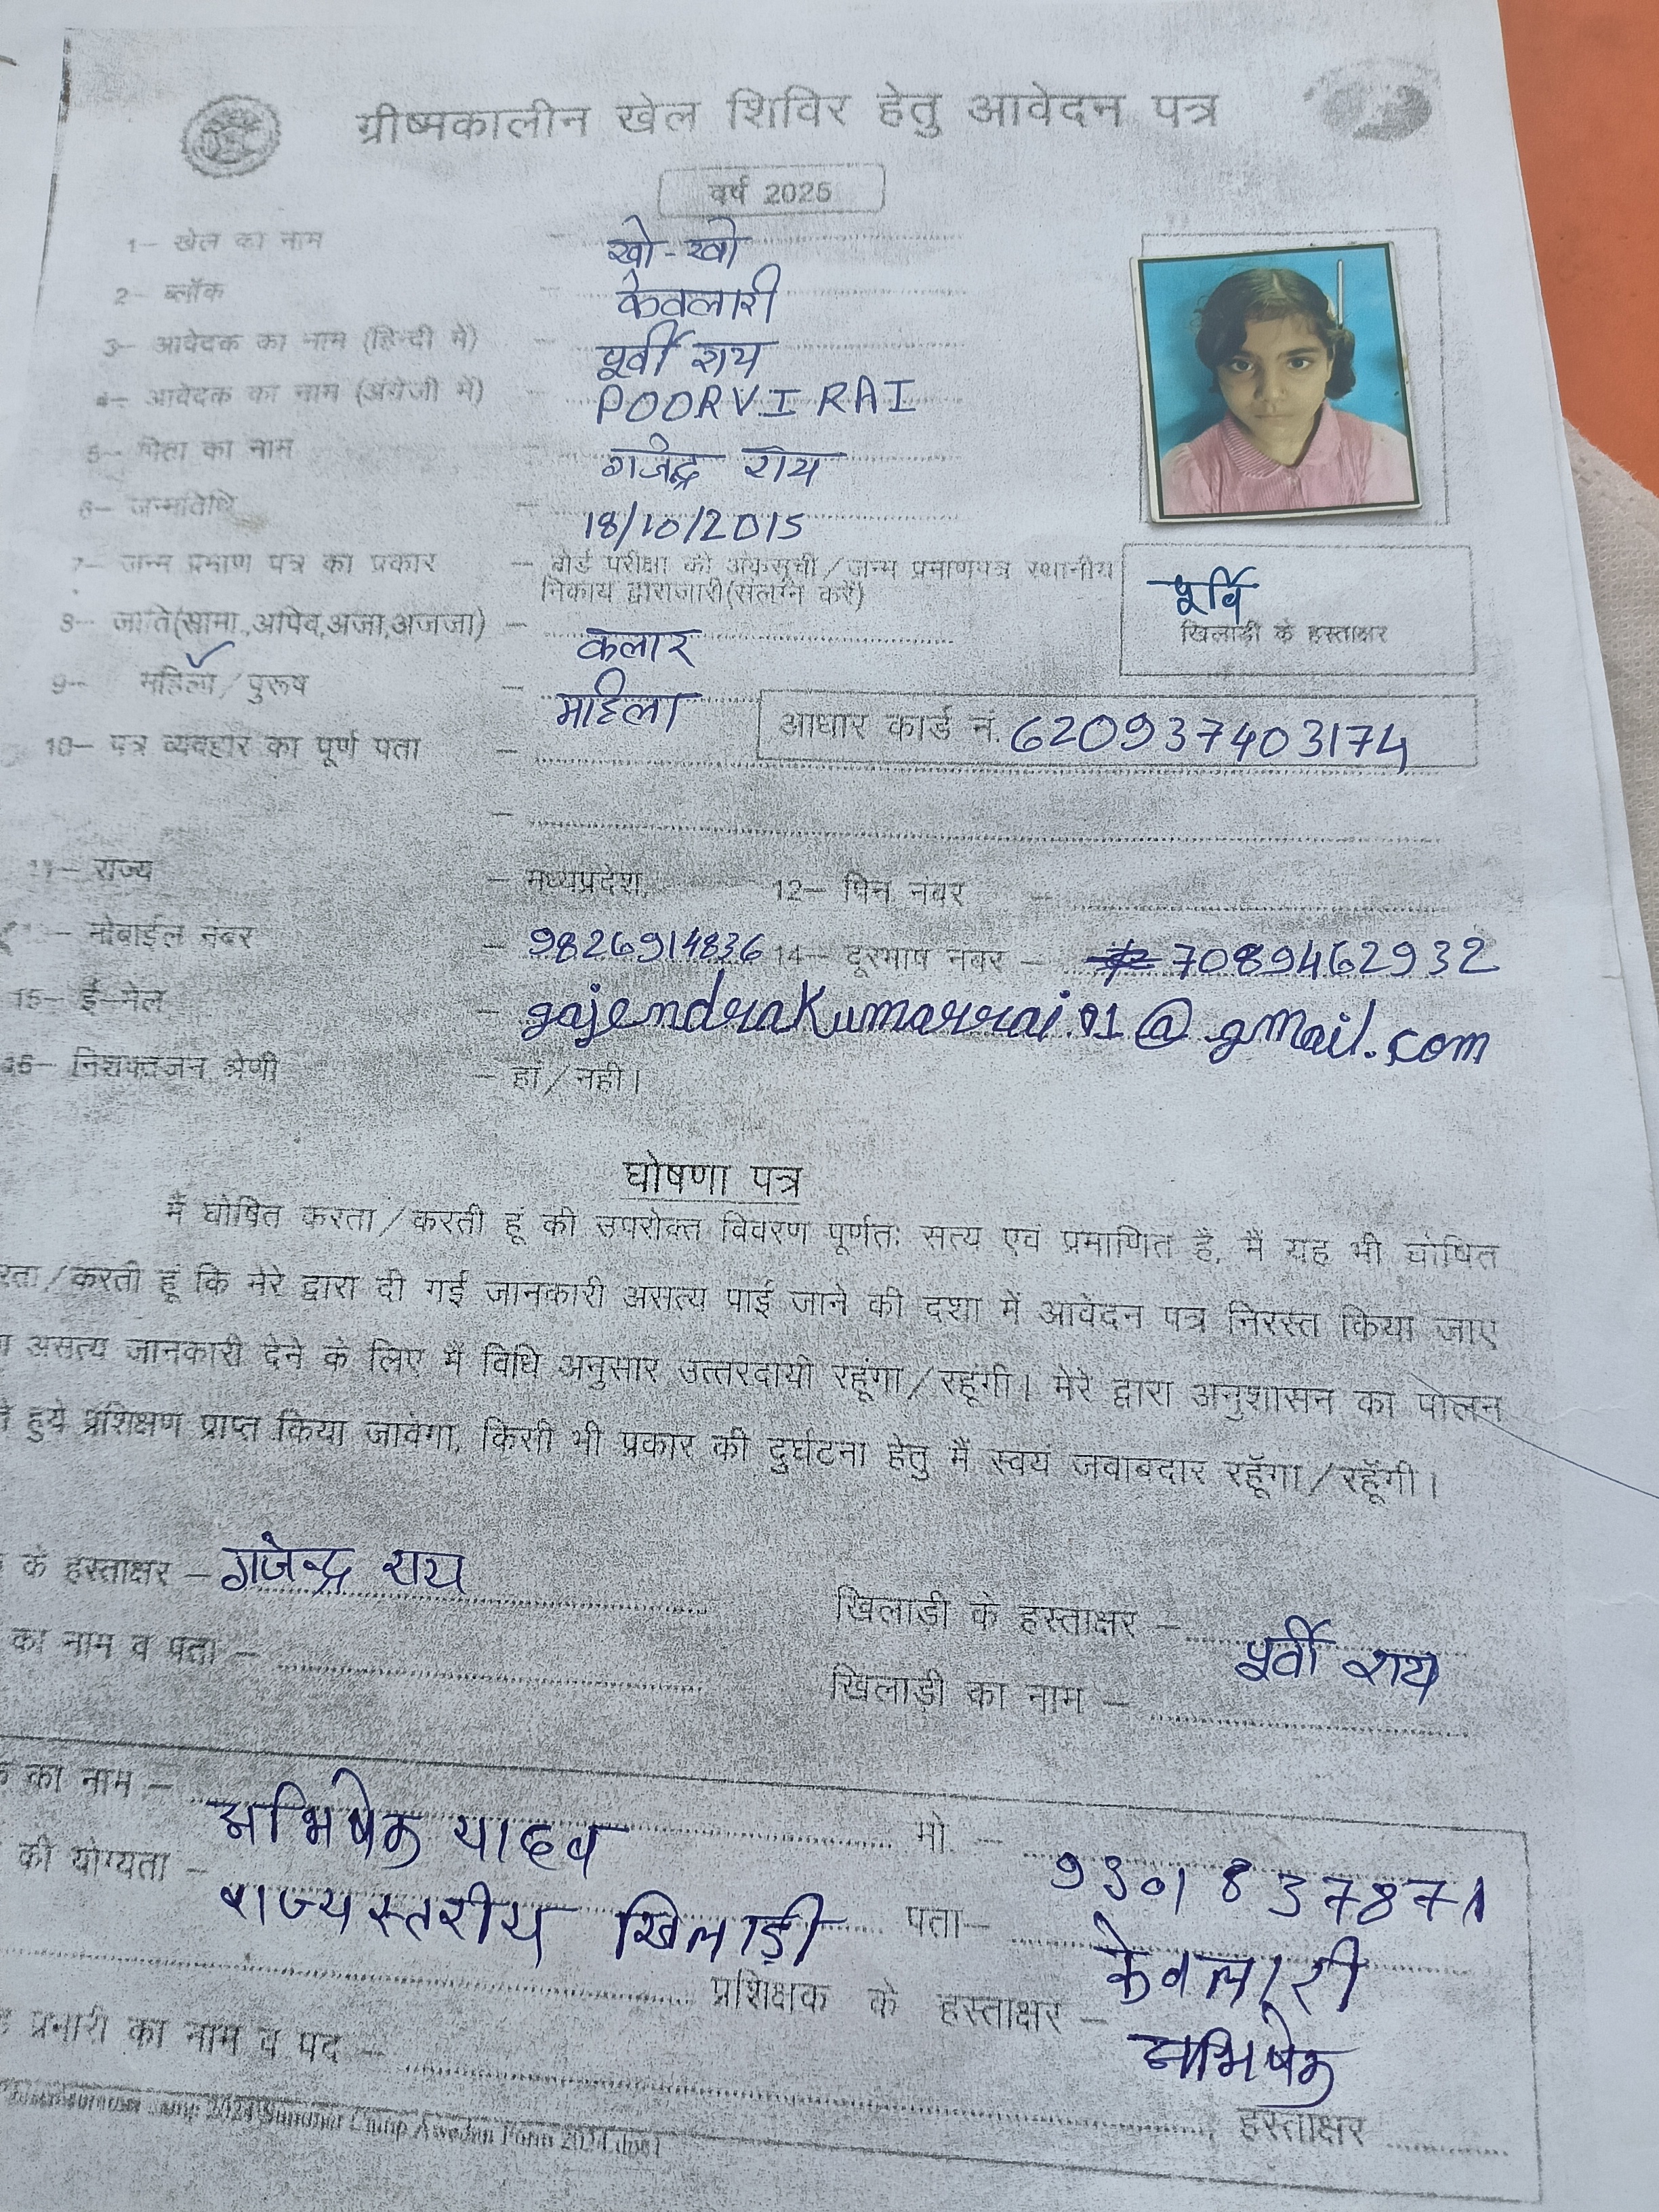 ग्रीष्मकालीन खेल शिविर हेतु आवेदन पत्र
वर्ष 2025
1- खेल का नाम - खो-खो
2- ब्लॉक - केवलारी
3- आवेदक का नाम (हिन्दी में) - पूर्वी राय
4- आवेदक का नाम (अंग्रेजी में) - POORVI RAI
5- पिता का नाम - गजेन्द्र राय
6- जन्मतिथि - 18/10/2015
7- जन्म प्रमाण पत्र का प्रकार - बोर्ड परीक्षा की अंकसूची/जन्म प्रमाणपत्र स्थानीय
निकाय द्वाराजारी(संलग्न करें)
पूर्वि
खिलाडी के हस्ताक्षर
8- जाति(सामा.,अपिव,अजा,अजजा) - कलार
9- महिला/पुरूष - महिला
आधार कार्ड नं. 620937403174
10- पत्र व्यवहार का पूर्ण पता -
11- राज्य - मध्यप्रदेश, 12- पिन नंबर -
मोबाईल नंबर - 9826914836 14- दूरभाष नंबर - 7089462932
15- ई-मेल - gajendrakumarrai.01@gmail.com
16- निशक्तजन श्रेणी - हां/नहीं।
घोषणा पत्र
मैं घोषित करता/करती हूं की उपरोक्त विवरण पूर्णतः सत्य एवं प्रमाणित है, मैं यह भी घोषित
रता/करती हूं कि मेरे द्वारा दी गई जानकारी असत्य पाई जाने की दशा में आवेदन पत्र निरस्त किया जाए
असत्य जानकारी देने के लिए मैं विधि अनुसार उत्तरदायी रहूंगा/रहूंगी। मेरे द्वारा अनुशासन का पालन
हुये प्रशिक्षण प्राप्त किया जावेगा, किसी भी प्रकार की दुर्घटना हेतु मैं स्वयं जवाबदार रहूँगा/रहूँगी।
के हस्ताक्षर - गजेन्द्र राय
खिलाडी के हस्ताक्षर - पूर्वी राय
का नाम व पता -
खिलाडी का नाम -
का नाम - अभिषेक यादव मो. - 9301837871
की योग्यता - राज्य स्तरीय खिलाड़ी पता- केवलारी
प्रशिक्षक के हस्ताक्षर - अभिषेक
प्रभारी का नाम व पद -
हस्ताक्षर